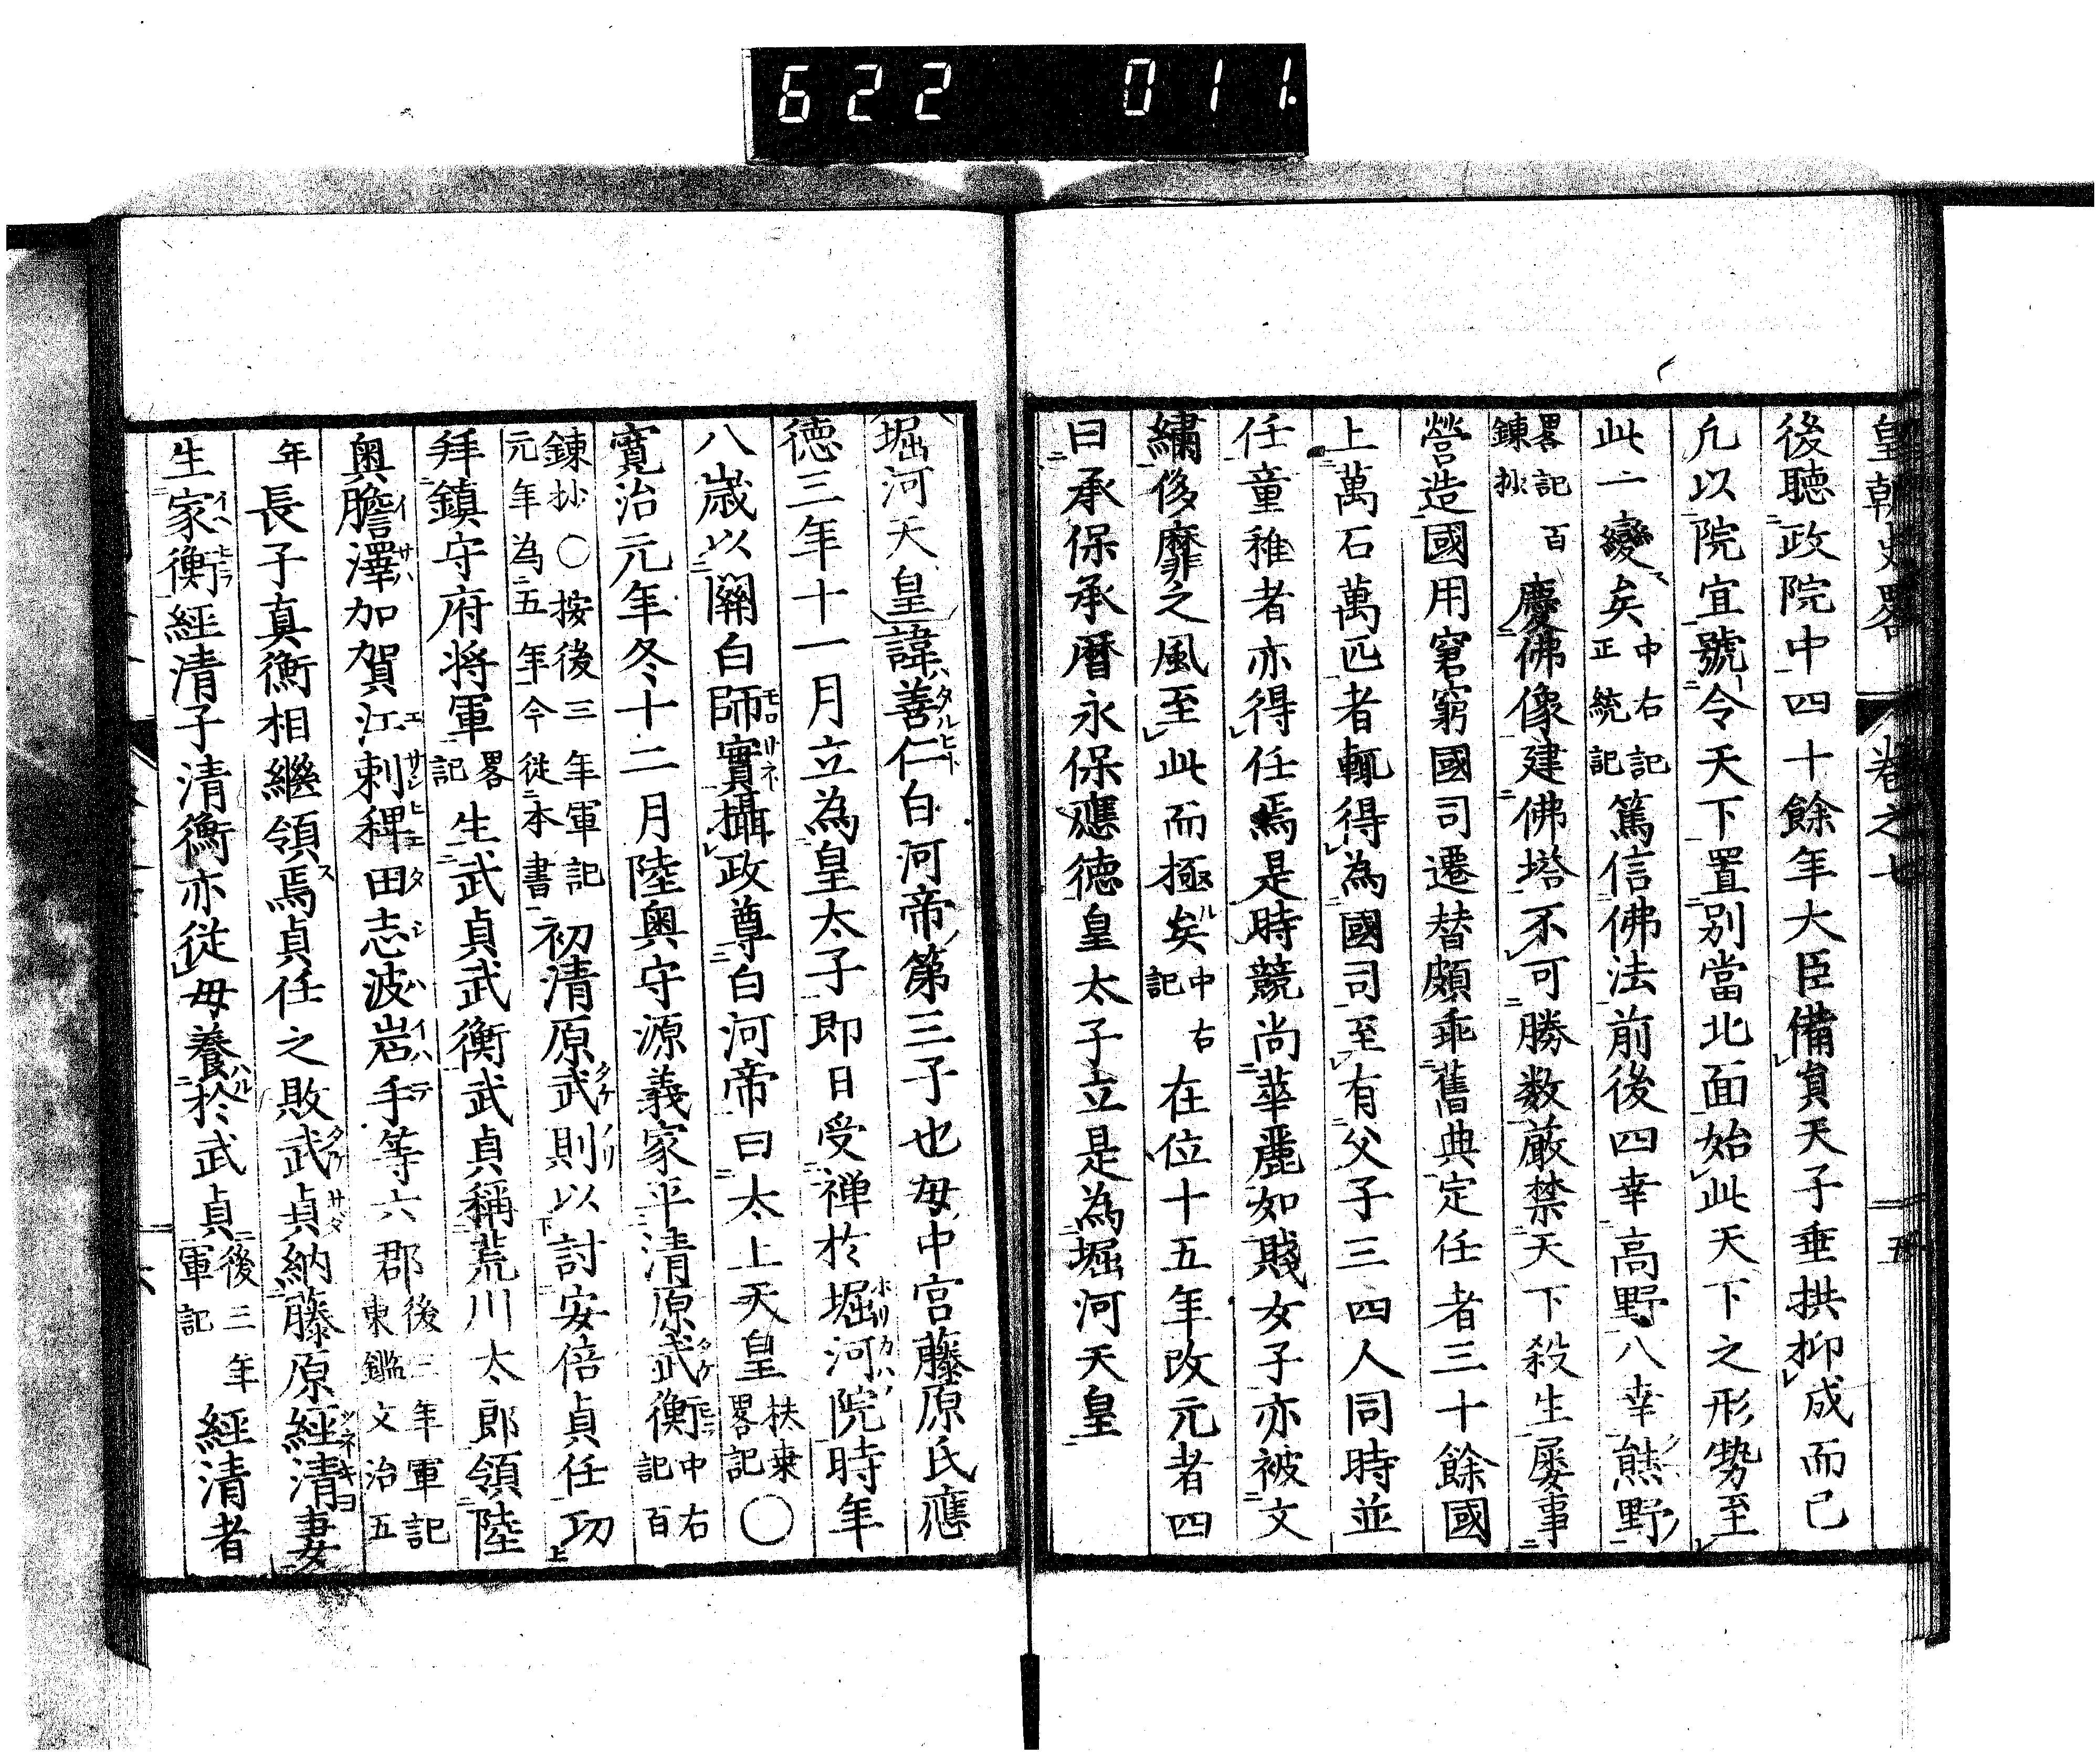 622 011.
皇朝史畧 卷之七 五
後聽政院中四十餘年大臣備員天子垂拱抑成而已
凢以院宜號令天下置別當北面始此天下之形勢至
此一變矣中右記正統記篤信佛法前後四幸高野八幸熊野
畧記百鍊抄慶佛像建佛塔不可勝数嚴禁天下殺生屢事
營造國用窘窮國司遷替頗乖舊典定任者三十餘國
上萬石萬匹者輒得為國司至有父子三四人同時並
任童稚者亦得任焉是時競尚華麗如賤女子亦被文
繡侈靡之風至此而極矣中右記在位十五年改元者四
曰承保承曆永保應徳皇太子立是為堀河天皇
堀河天皇諱善仁白河帝第三子也母中宮藤原氏應
徳三年十一月立為皇太子即日受禅於堀河院時年
八歳以關白師實攝政尊白河帝曰太上天皇扶桒畧記○
寛治元年冬十二月陸奥守源義家平清原武衡中右記百
鍊抄○按後三年軍記元年為五年今從本書初清原武則以討安倍貞任功
拜鎮守府将軍畧記生武貞武衡武貞稱荒川太郎領陸
奥膽澤加賀江刺稗田志波岩手等六郡後三年軍記東鑑文治五
年長子真衡相繼領焉貞任之敗武貞納藤原經清妻
生家衡經清子清衡亦從母養於武貞後三年軍記經清者